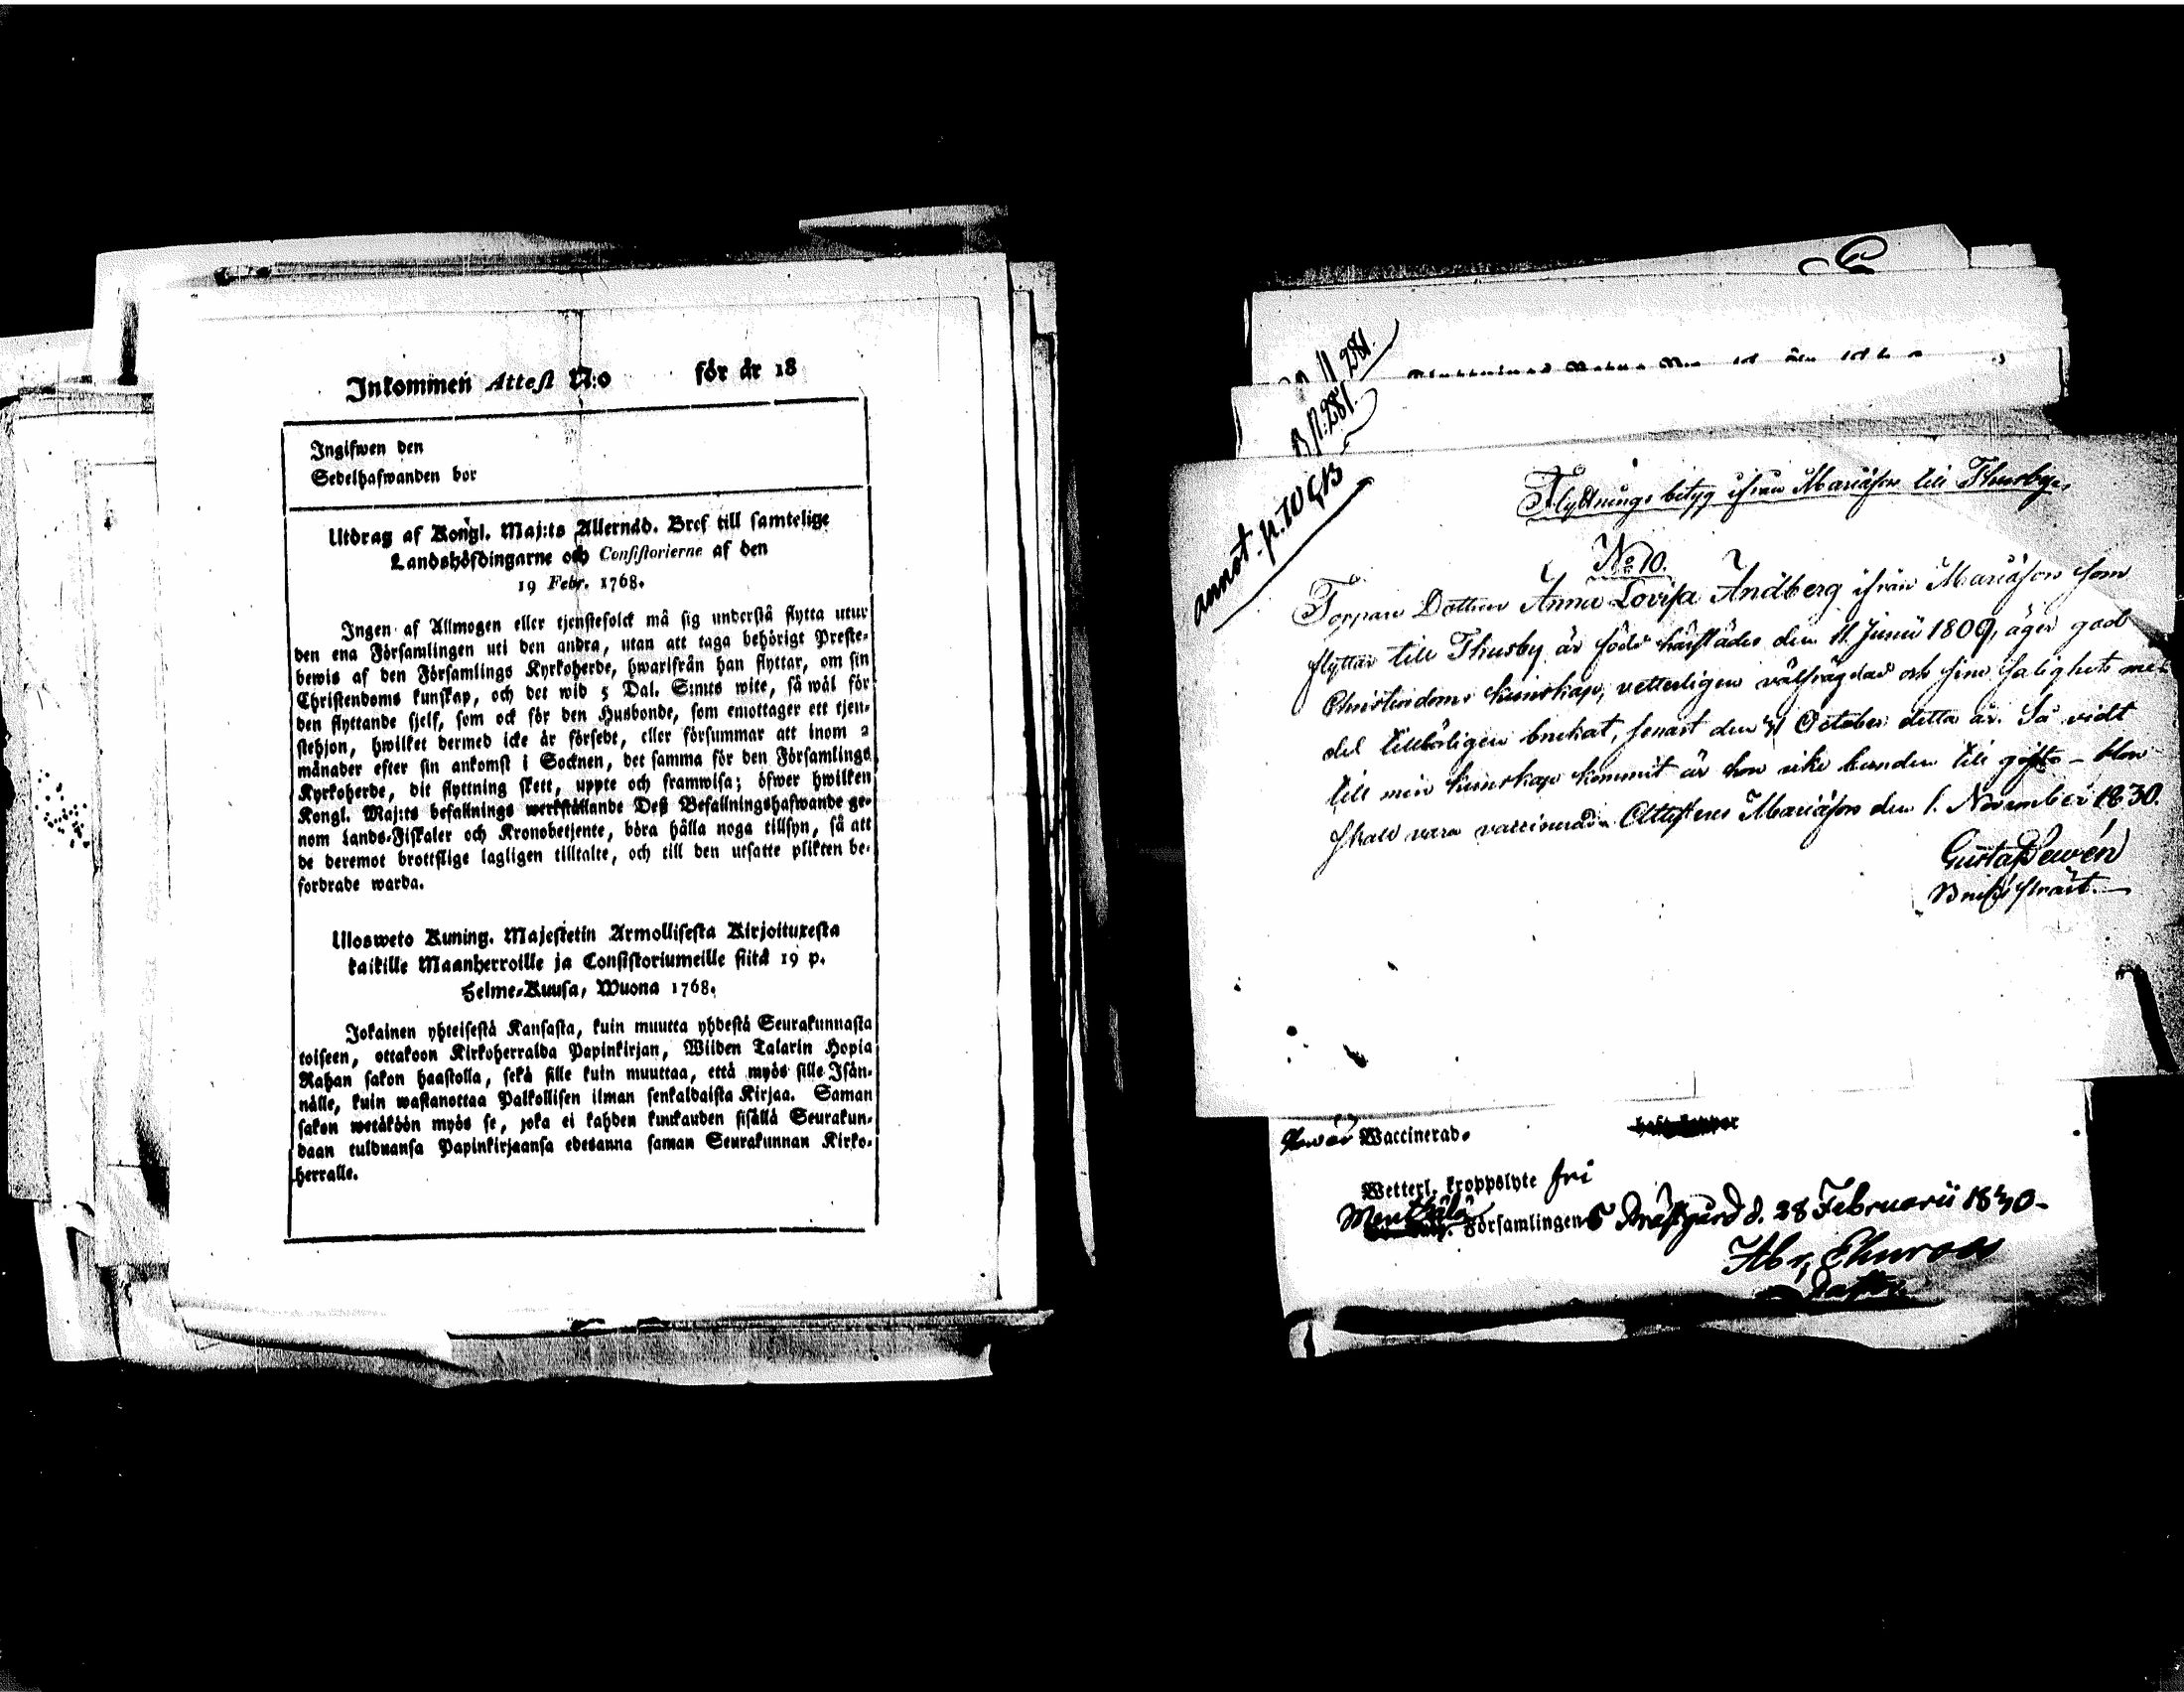 Inkommen Attest N:o för år 18
Ingifwen den
Sedelhafwanden bor
Utdrag af Kongl. Maj:ts Allernåd. Bref till samtelige
Landshöfdingarne och Consistorierne af den
19 Febr. 1768.
Ingen af Allmogen eller tjenstefolck må sig understå flytta utur
den ena Församlingen uti den andra, utan att taga behörigt Preste-
bewis af den Församlings Kyrkoherde, hwarifrån han flyttar, om sin
Christendoms kunskap, och det wid 5 Dal. S:mts wite, så wäl för
den flyttande sjelf, som ock för den Husbonde, som emottager ett tjen-
stehjon, hwilket dermed icke är försedt, eller försummar att inom 2
månader efter sin ankomst i Socknen, det samma för den Församlings
Kyrkoherde, dit flyttning skett, uppte och framwisa; öfwer hwilken
Kongl. Maj:ts befallnings werkställande Deß Befallningshafwande ge-
nom Lands-Fiskaler och Kronobetjente, böra hålla noga tillsyn, så att
de deremot brottslige lagligen tilltalte, och till den utsatte plikten be-
fordrade warda.
Ulosweto Kuning. Majestetin Armollisesta Kirjoituxesta
kaikille Maanherroille ja Consistoriumeille siitä 19 p.
Helme-Kuusa, Wuona 1768.
Jokainen yhteisestä Kansasta, kuin muutta yhdestä Seurakunnasta
toiseen, ottakoon Kirkoherralda Papinkirjan, Wiiden Talarin Hopia
Rahan sakon haastolla, sekä sille kuin muuttaa, että myös sille Isän-
nälle, kuin wastanottaa Palkollisen ilman senkaldaista Kirjaa. Saman
sakon wetäköön myös se, joka ei kahden kuukauden sisällä Seurakun-
daan tulduansa Papinkirjaansa edesanna saman Seurakunnan Kirko-
herralle.
p. 281.
p. 281.
annot. p. 10 § 13
Flyttnings betyg ifrån Mariäfors till Thusby.
No 10.
Torpare Dottren Anna Lovisa Andberg ifrån Mariäfors som
flyttar till Thusby är född härstädes den 11 Junii 1809, äger god
Christendoms kunskap, vetterligen välfrägdad och sine salighets me-
del tillbörligen brukat, senast den 31 October detta år. Så vidt
till min kunskap kommit är hon icke bunden till gifte – Hon
skall vara vaccinerad. Attesteres Mariäfors den 1. November 1830.
Gustaf
Bruks
är Waccinerad.
Wetterl. kroppslyte fri
Mentzälä Församlingens Prästgård d. 28 Februarii 1830.
Abr, Ehnroos
Pastor